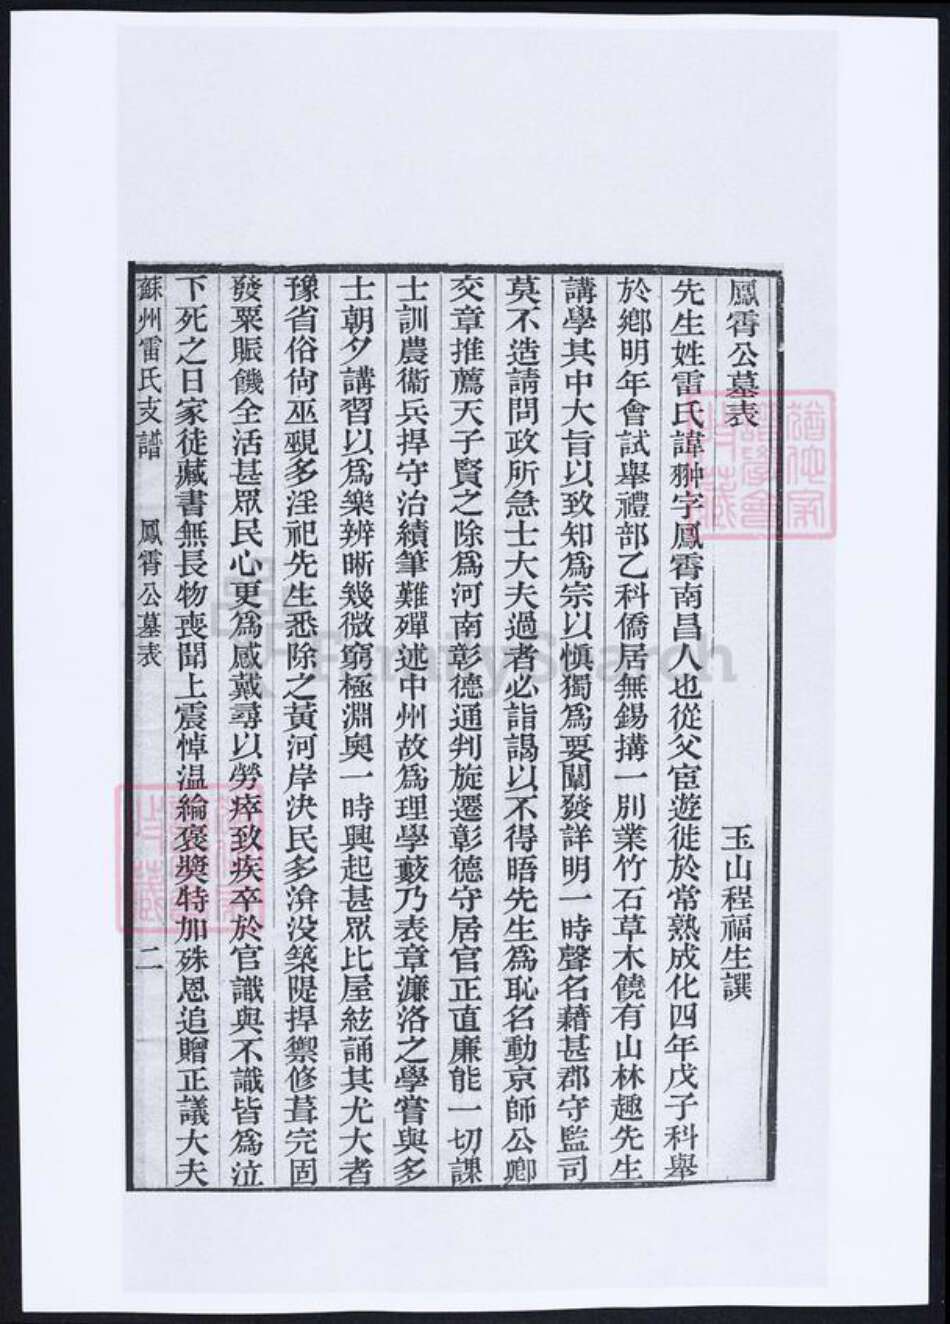 鳳霄公墓表
玉山程福生譔
先生姓雷氏諱翀字鳳霄南昌人也從父宦遊徙於常熟成化四年戊子科舉
於鄉明年會試舉禮部乙科僑居無錫搆一別業竹石草木饒有山林趣先生
講學其中大旨以致知爲宗以愼獨爲要闡發詳明一時聲名藉甚郡守監司
莫不造請問政所急士大夫過者必詣謁以不得晤先生爲恥名動京師公卿
交章推薦天子賢之除爲河南彰德通判旋遷彰德守居官正直廉能一切課
士訓農衞兵捍守治績筆難殫述中州故爲理學藪乃表章濂洛之學嘗與多
士朝夕講習以爲樂辨晰幾微窮極淵奧一時興起甚眾比屋絃誦其尤大者
豫省俗尙巫覡多淫祀先生悉除之黃河岸決民多渰没築隄捍禦修葺完固
發粟賑饑全活甚眾民心更爲感戴尋以勞瘁致疾卒於官識與不識皆爲泣
下死之日家徒藏書無長物喪聞上震悼温綸褒奬特加殊恩追贈正議大夫
蘇州雷氏支譜 鳳霄公墓表 二
FamilySearch